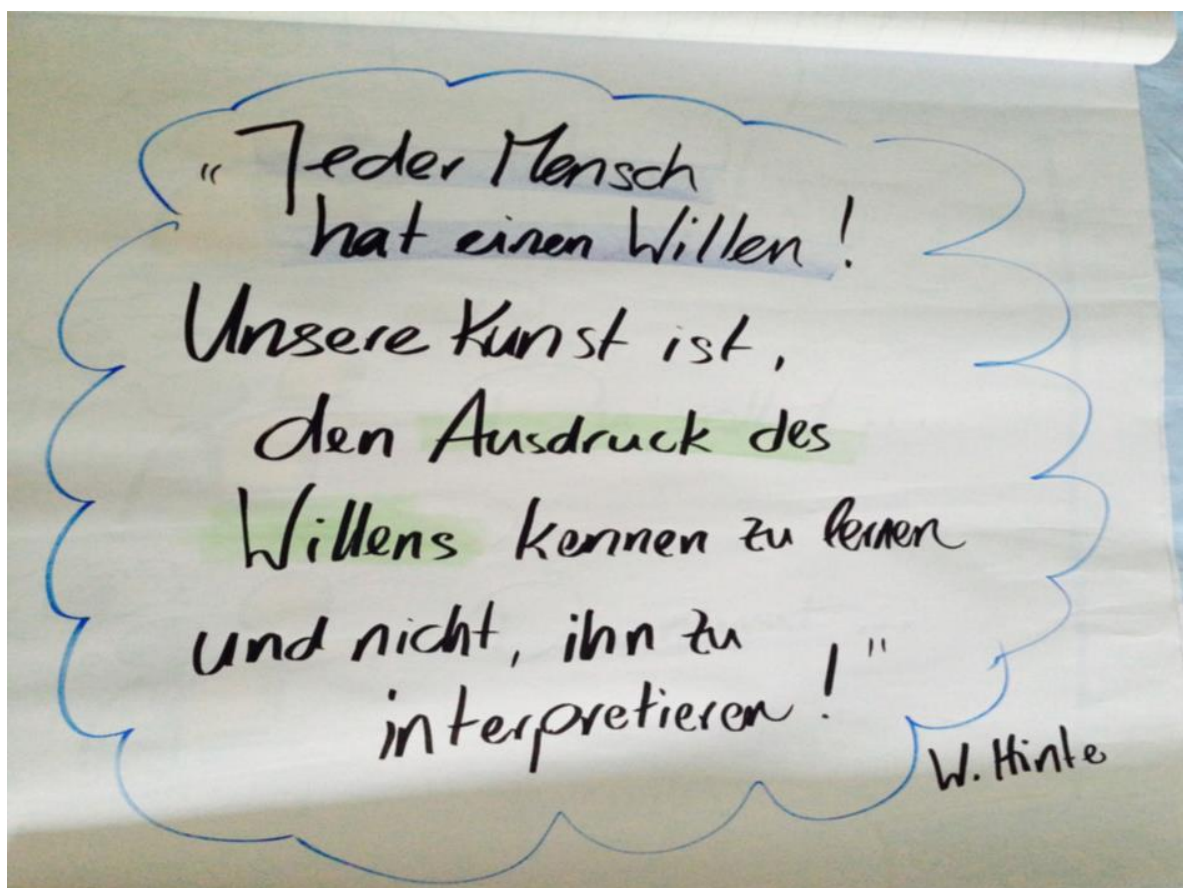 „Jeder Mensch
hat einen Willen!
Unsere Kunst ist,
den Ausdruck des
Willens kennen zu lernen
und nicht, ihn zu
interpretieren!"
W. Hinte